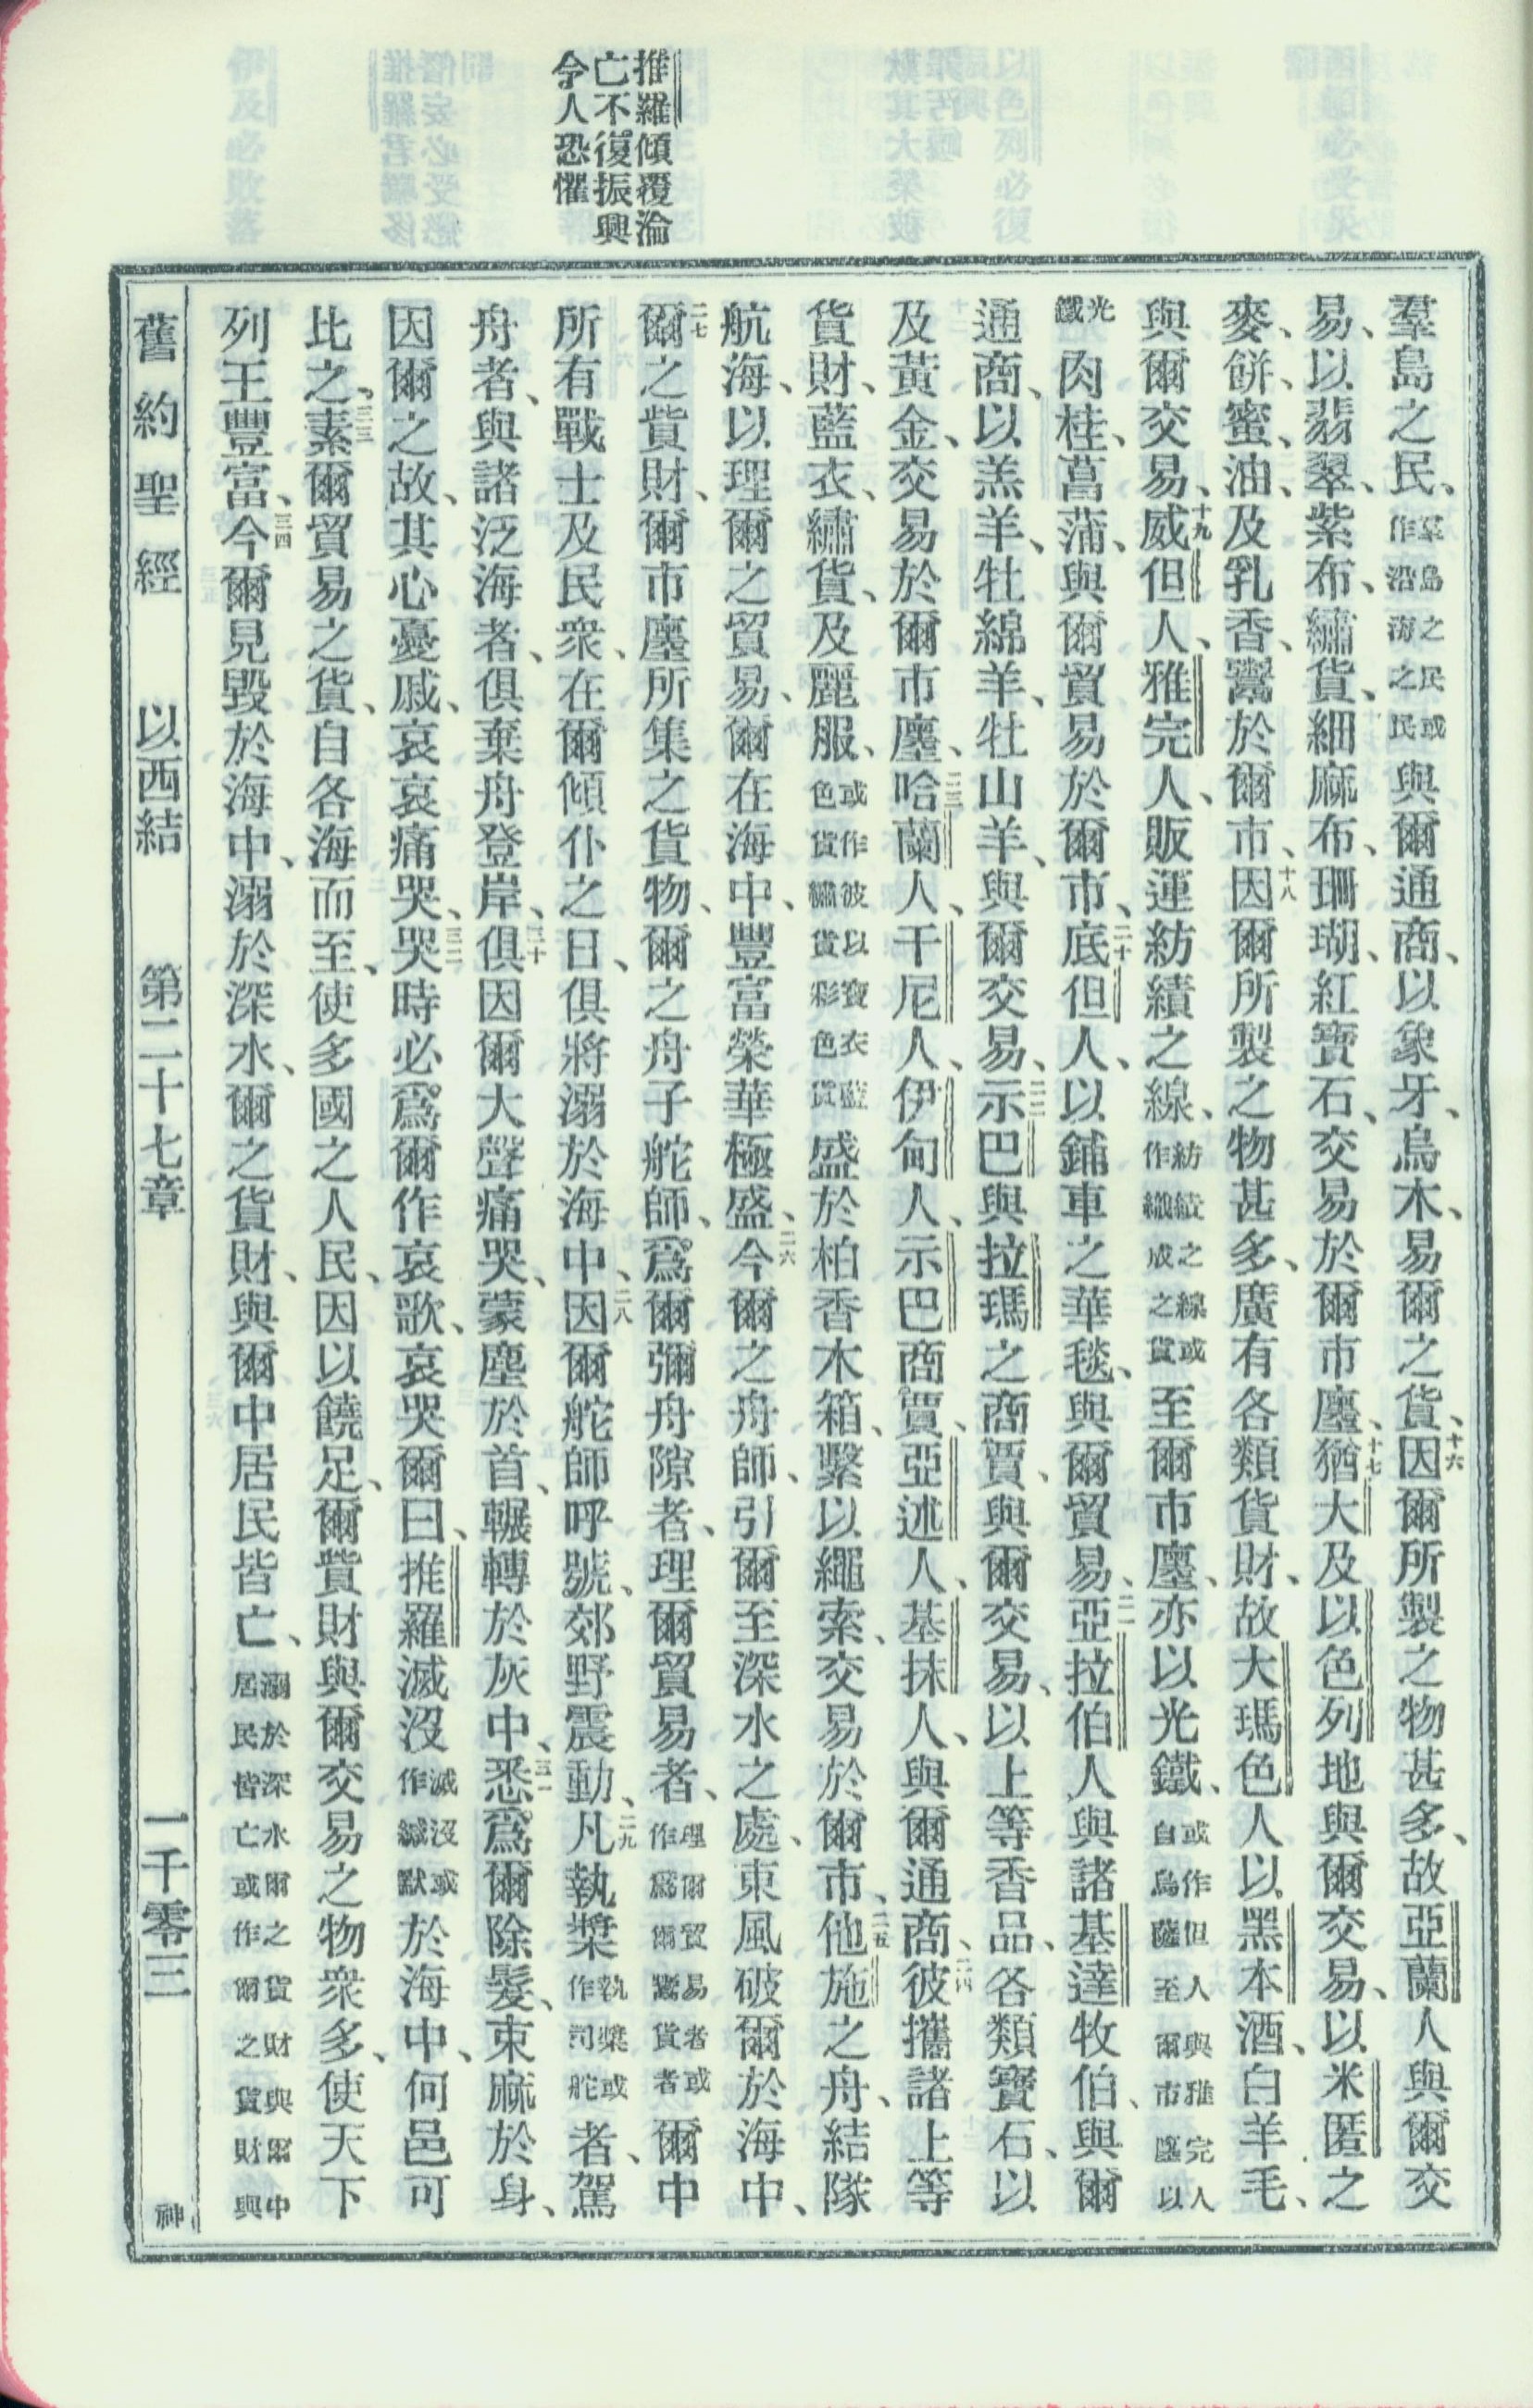 推羅傾覆淪
亡不復振興
令人恐懼
羣島之民、羣島之民或作沿海之民與爾通商、以象牙、烏木、易爾之貨、十六因爾所製之物甚多、故亞蘭人與爾交
易、以翡翠、紫布、繡貨、細麻布、珊瑚、紅寶石、交易於爾市廛、十七猶大及以色列地與爾交易、以米匿之
麥、餅、蜜、油、及乳香、鬻於爾市、十八因爾所製之物甚多、廣有各類貨財、故大瑪色人以黑本酒、白羊毛、
與爾交易、十九威但人、雅完人、販運紡績之線、紡績之線或作織成之貨至爾市廛、亦以光鐵、或作但人與雅完人自烏薩至爾市廛以
光鐵肉桂、菖蒲、與爾貿易於爾市、二十底但人、以鋪車之華毯、與爾貿易、二一亞拉伯人與諸基達牧伯、與爾
通商、以羔羊、牡綿羊、牡山羊、與爾交易、二二示巴與拉瑪之商賈、與爾交易、以上等香品、各類寶石、以
及黃金、交易於爾市廛、二三哈蘭人、干尼人、伊甸人、示巴商賈、亞述人、基抹人、與爾通商、二四彼攜諸上等
貨財、藍衣、繡貨、及麗服、或作彼以寶衣藍色貨繡貨彩色貨盛於柏香木箱、繫以繩索、交易於爾市、二五他施之舟、結隊
航海、以理爾之貿易、爾在海中、豐富榮華極盛、二六今爾之舟師、引爾至深水之處、東風破爾於海中、
二七爾之貲財、爾市廛所集之貨物、爾之舟子舵師、爲爾彌舟隙者、理爾貿易者、理爾貿易者或作爲爾鬻貨者爾中
所有戰士及民衆、在爾傾仆之日、俱將溺於海中、二八因爾舵師呼號、郊野震動、二九凡執槳執槳或作司舵者、駕
舟者、與諸泛海者、俱棄舟登岸、三十俱因爾大聲痛哭、蒙塵於首、輾轉於灰中、三一悉爲爾除髮、束麻於身、
因爾之故、其心憂戚、哀哀痛哭、三二哭時必爲爾作哀歌、哀哭爾曰、推羅滅沒滅沒或作緘默於海中、何邑可
比之、三三素爾貿易之貨、自各海而至、使多國之人民、因以饒足、爾貲財與爾交易之物衆多、使天下
列王豐富、三四今爾見毀於海中、溺於深水、爾之貨財、與爾中居民皆亡、溺於深水爾之貨財與爾中居民皆亡或作爾之貨財與
舊約聖經 以西結 第二十七章 一千零三 神